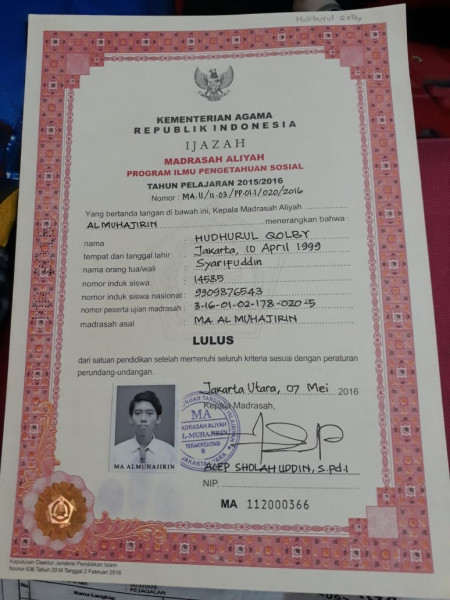 Hudhurul Qolby
KEMENTERIAN AGAMA
REPUBLIK INDONESIA
IJAZAH
MADRASAH ALIYAH
PROGRAM ILMU PENGETAHUAN SOSIAL
TAHUN PELAJARAN 2015/2016
Nomor : MA.11/11.03/PP.01.1/020/2016
Yang bertanda tangan di bawah ini, Kepala Madrasah Aliyah
ALMUHAJIRIN menerangkan bahwa :
nama : HUDHURUL QOLBY
tempat dan tanggal lahir : Jakarta, 10 April 1999
nama orang tua/wali : Syarifuddin
nomor induk siswa : 14585
nomor induk siswa nasional : 9909876543
nomor peserta ujian madrasah : 3-16-01-02-178-020-5
madrasah asal : MA. AL MUHAJIRIN
LULUS
dari satuan pendidikan setelah memenuhi seluruh kriteria sesuai dengan peraturan
perundang-undangan.
Jakarta Utara, 07 Mei 2016
Kepala Madrasah,
MA
MADRASAH ALIYAH
AL-MUHAJIRIN
TERAKREDITASI
B
JAKARTA UTARA
MA ALMUHAJIRIN
ACEP SHOLAHUDDIN, S.pd.I
NIP.
MA 112000366
Keputusan Direktur Jenderal Pendidikan Islam
Nomor 536 Tahun 2016 Tanggal 2 Februari 2016
PEJAGALAN